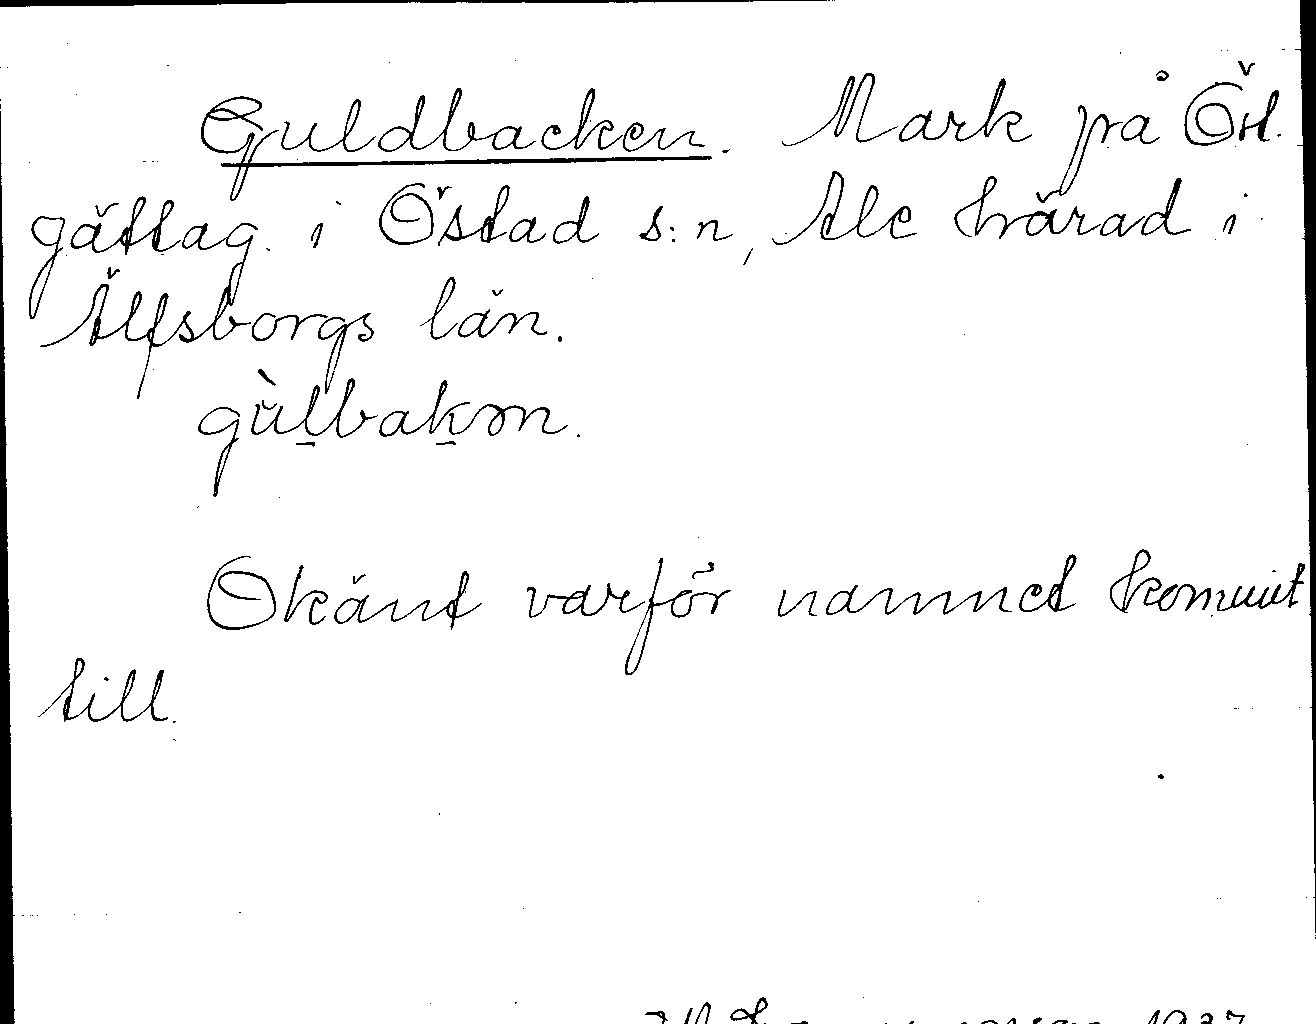 Guldbacken. Mark på Öst.
gättag. i Östad s:n, Ale härad i
Älfsborgs län.
gùlbakən.
Okänt varför namnet kommit
till.
1937